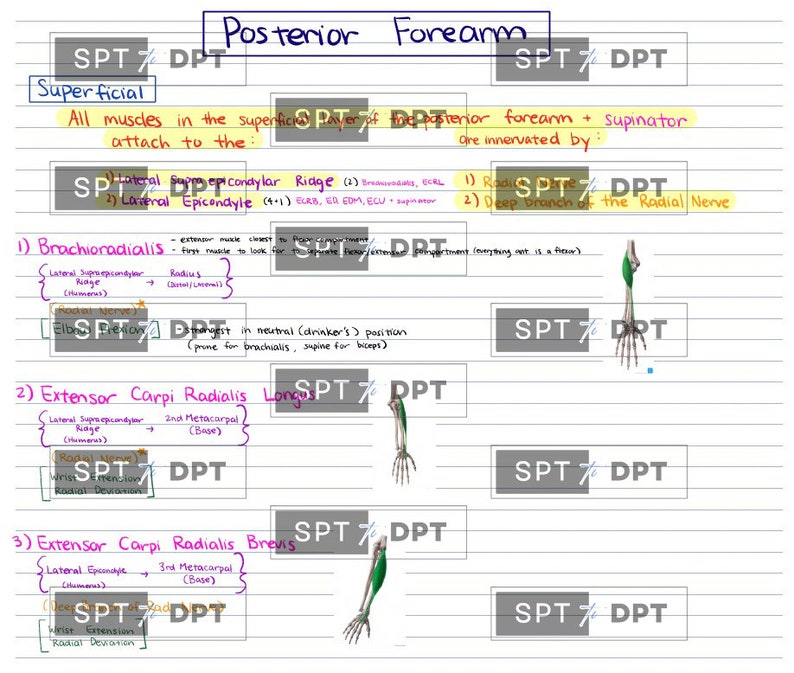 Posterior Forearm
SPT to DPT
SPT to DPT
Superficial
SPT to DPT
All muscles in the superficial layer of the posterior forearm + supinator
attach to the:
are innervated by:
SPT to DPT
SPT to DPT
1) Lateral Supraepicondylar Ridge (2) Brachioradialis, ECRL
1) Radial Nerve
2) Lateral Epicondyle (4+1) ECRB, ED, EDM, ECU + supinator
2) Deep branch of the Radial Nerve
SPT to DPT
1) Brachioradialis
- extensor muscle closest to flexor compartment
- first muscle to look for to separate flexor/extensor compartment (everything ant. is a flexor)
{Lateral Supraepicondylar Ridge (Humerus) → Radius (Distal/Lateral)}
SPT to DPT
SPT to DPT
(Radial Nerve)*
[Elbow Flexion]
- strongest in neutral (drinker's) position
(prone for brachialis, supine for biceps)
SPT to DPT
2) Extensor Carpi Radialis Longus
{Lateral Supraepicondylar Ridge (Humerus) → 2nd Metacarpal (Base)}
SPT to DPT
SPT to DPT
(Radial Nerve)*
[Wrist Extension
Radial Deviation]
SPT to DPT
3) Extensor Carpi Radialis Brevis
{Lateral Epicondyle (Humerus) → 3rd Metacarpal (Base)}
SPT to DPT
SPT to DPT
(Deep Branch of Rad. Nerve)
[Wrist Extension
Radial Deviation]